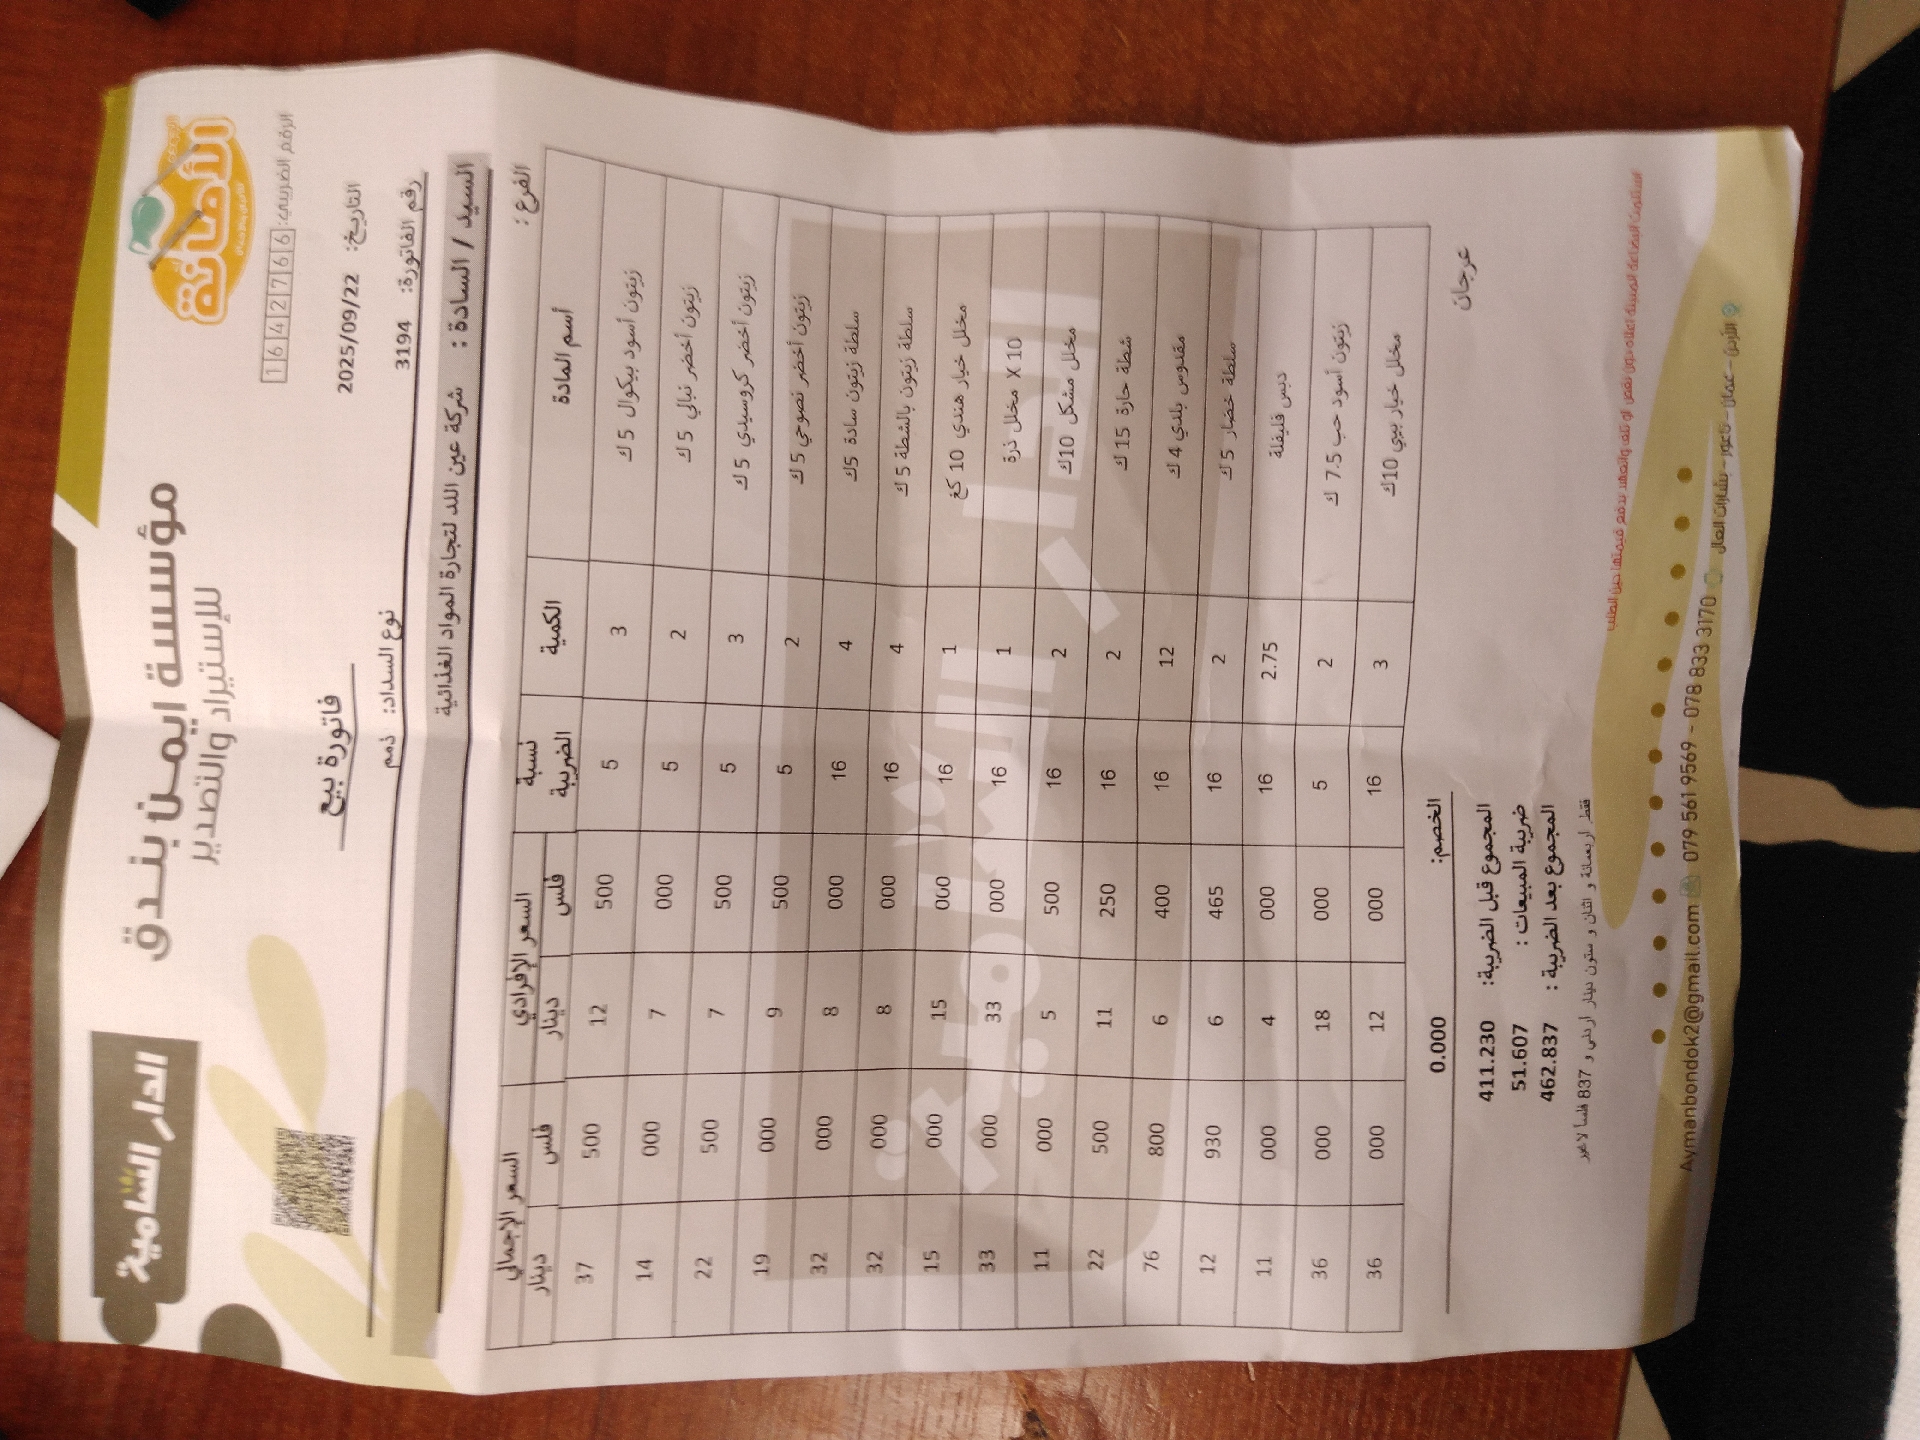 الدار الشامية
مؤسسة ايمن بندق
للإستيراد والتصدير
الأصالة
الرقم الضريبي: 16427661
فاتورة بيع
التاريخ: 2025/09/22
نوع السداد: ذمم
رقم الفاتورة: 3194
السيد / السادة : شركة عين اللد لتجارة المواد الغذائية
الفرع :
أسم المادة الكمية نسبة الضريبة السعر الإفرادي السعر الإجمالي
فلس دينار فلس دينار
زيتون أسود بيكوال 5 ك 3 5 500 12 500 37
زيتون أخضر نبالي 5 ك 2 5 000 7 000 14
زيتون أخضر كروسيدي 5 ك 3 5 500 7 500 22
زيتون أخضر نصوحي 5 ك 2 5 500 9 000 19
سلطة زيتون سادة 5ك 4 16 000 8 000 32
سلطة زيتون بالشطة 5 ك 4 16 000 8 000 32
مخلل خيار هندي 10 كغ 1 16 000 15 000 15
مخلل ذرة X 10 1 16 000 33 000 33
مخلل مشكل 10ك 2 16 500 5 000 11
شطة حارة 15 ك 2 16 250 11 500 22
مقدوس بلدي 4 ك 12 16 400 6 800 76
سلطة خضار 5 ك 2 16 465 6 930 12
دبس فليفلة 2.75 16 000 4 000 11
زيتون أسود حب 7.5 ك 2 5 000 18 000 36
مخلل خيار بيبي 10ك 3 16 000 12 000 36
عرجان
الخصم: 0.000
المجموع قبل الضريبة: 411.230
ضريبة المبيعات : 51.607
المجموع بعد الضريبة : 462.837
فقط اربعمائة و اثنان و ستون دينار اردني و 837 فلسا لا غير
استلمت البضاعة المبينة اعلاه دون نقص او تلف واتعهد بدفع قيمتها حين الطلب
الأردن - عمان - ناعور - بشارات العال 079 561 9569 - 078 833 3170 Aymanbondok2@gmail.com